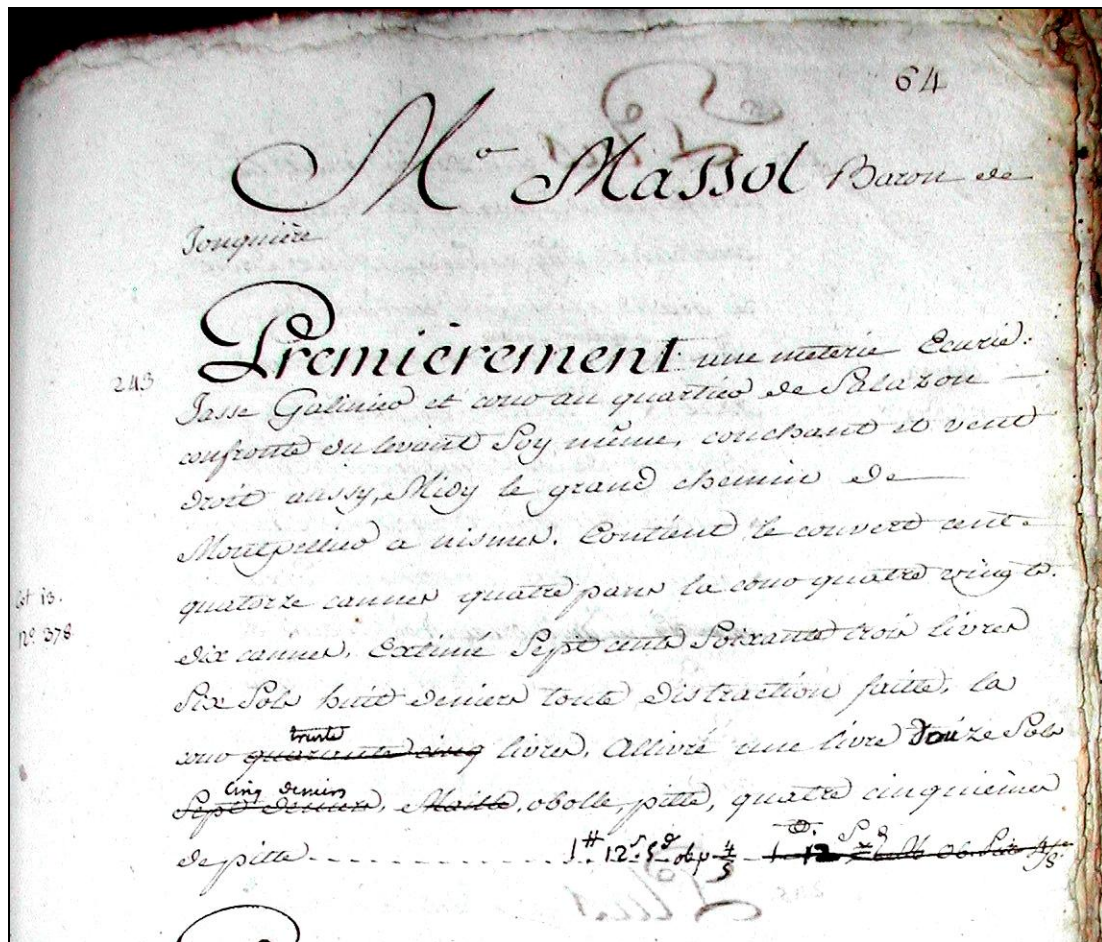 64
M.r Massol Baron de
Jonquière
243 Premièrement une meterie Ecurie.
Jasse Galinier et cour au quartier de Salazon
confronte du levant Soy même, couchant et vent
droit aussy, Midy le grand chemin de
Montpellier a nismes. Contient le couvert cent
quatorze cannes quatre pans la cour quatre vingts
dix cannes. Extimé Sept cents Soixante trois livres
Six Sols huit deniers toute distraction faitte, la
trente
cour quarante cinq livres. Allivré une livre Douze Sols
Cinq deniers
Sept deniers, Maille, obolle, pitte, quatre cinquièmes
de pitte 1# 12s 5d ob p 4/5
Cot 13.
N.o 378